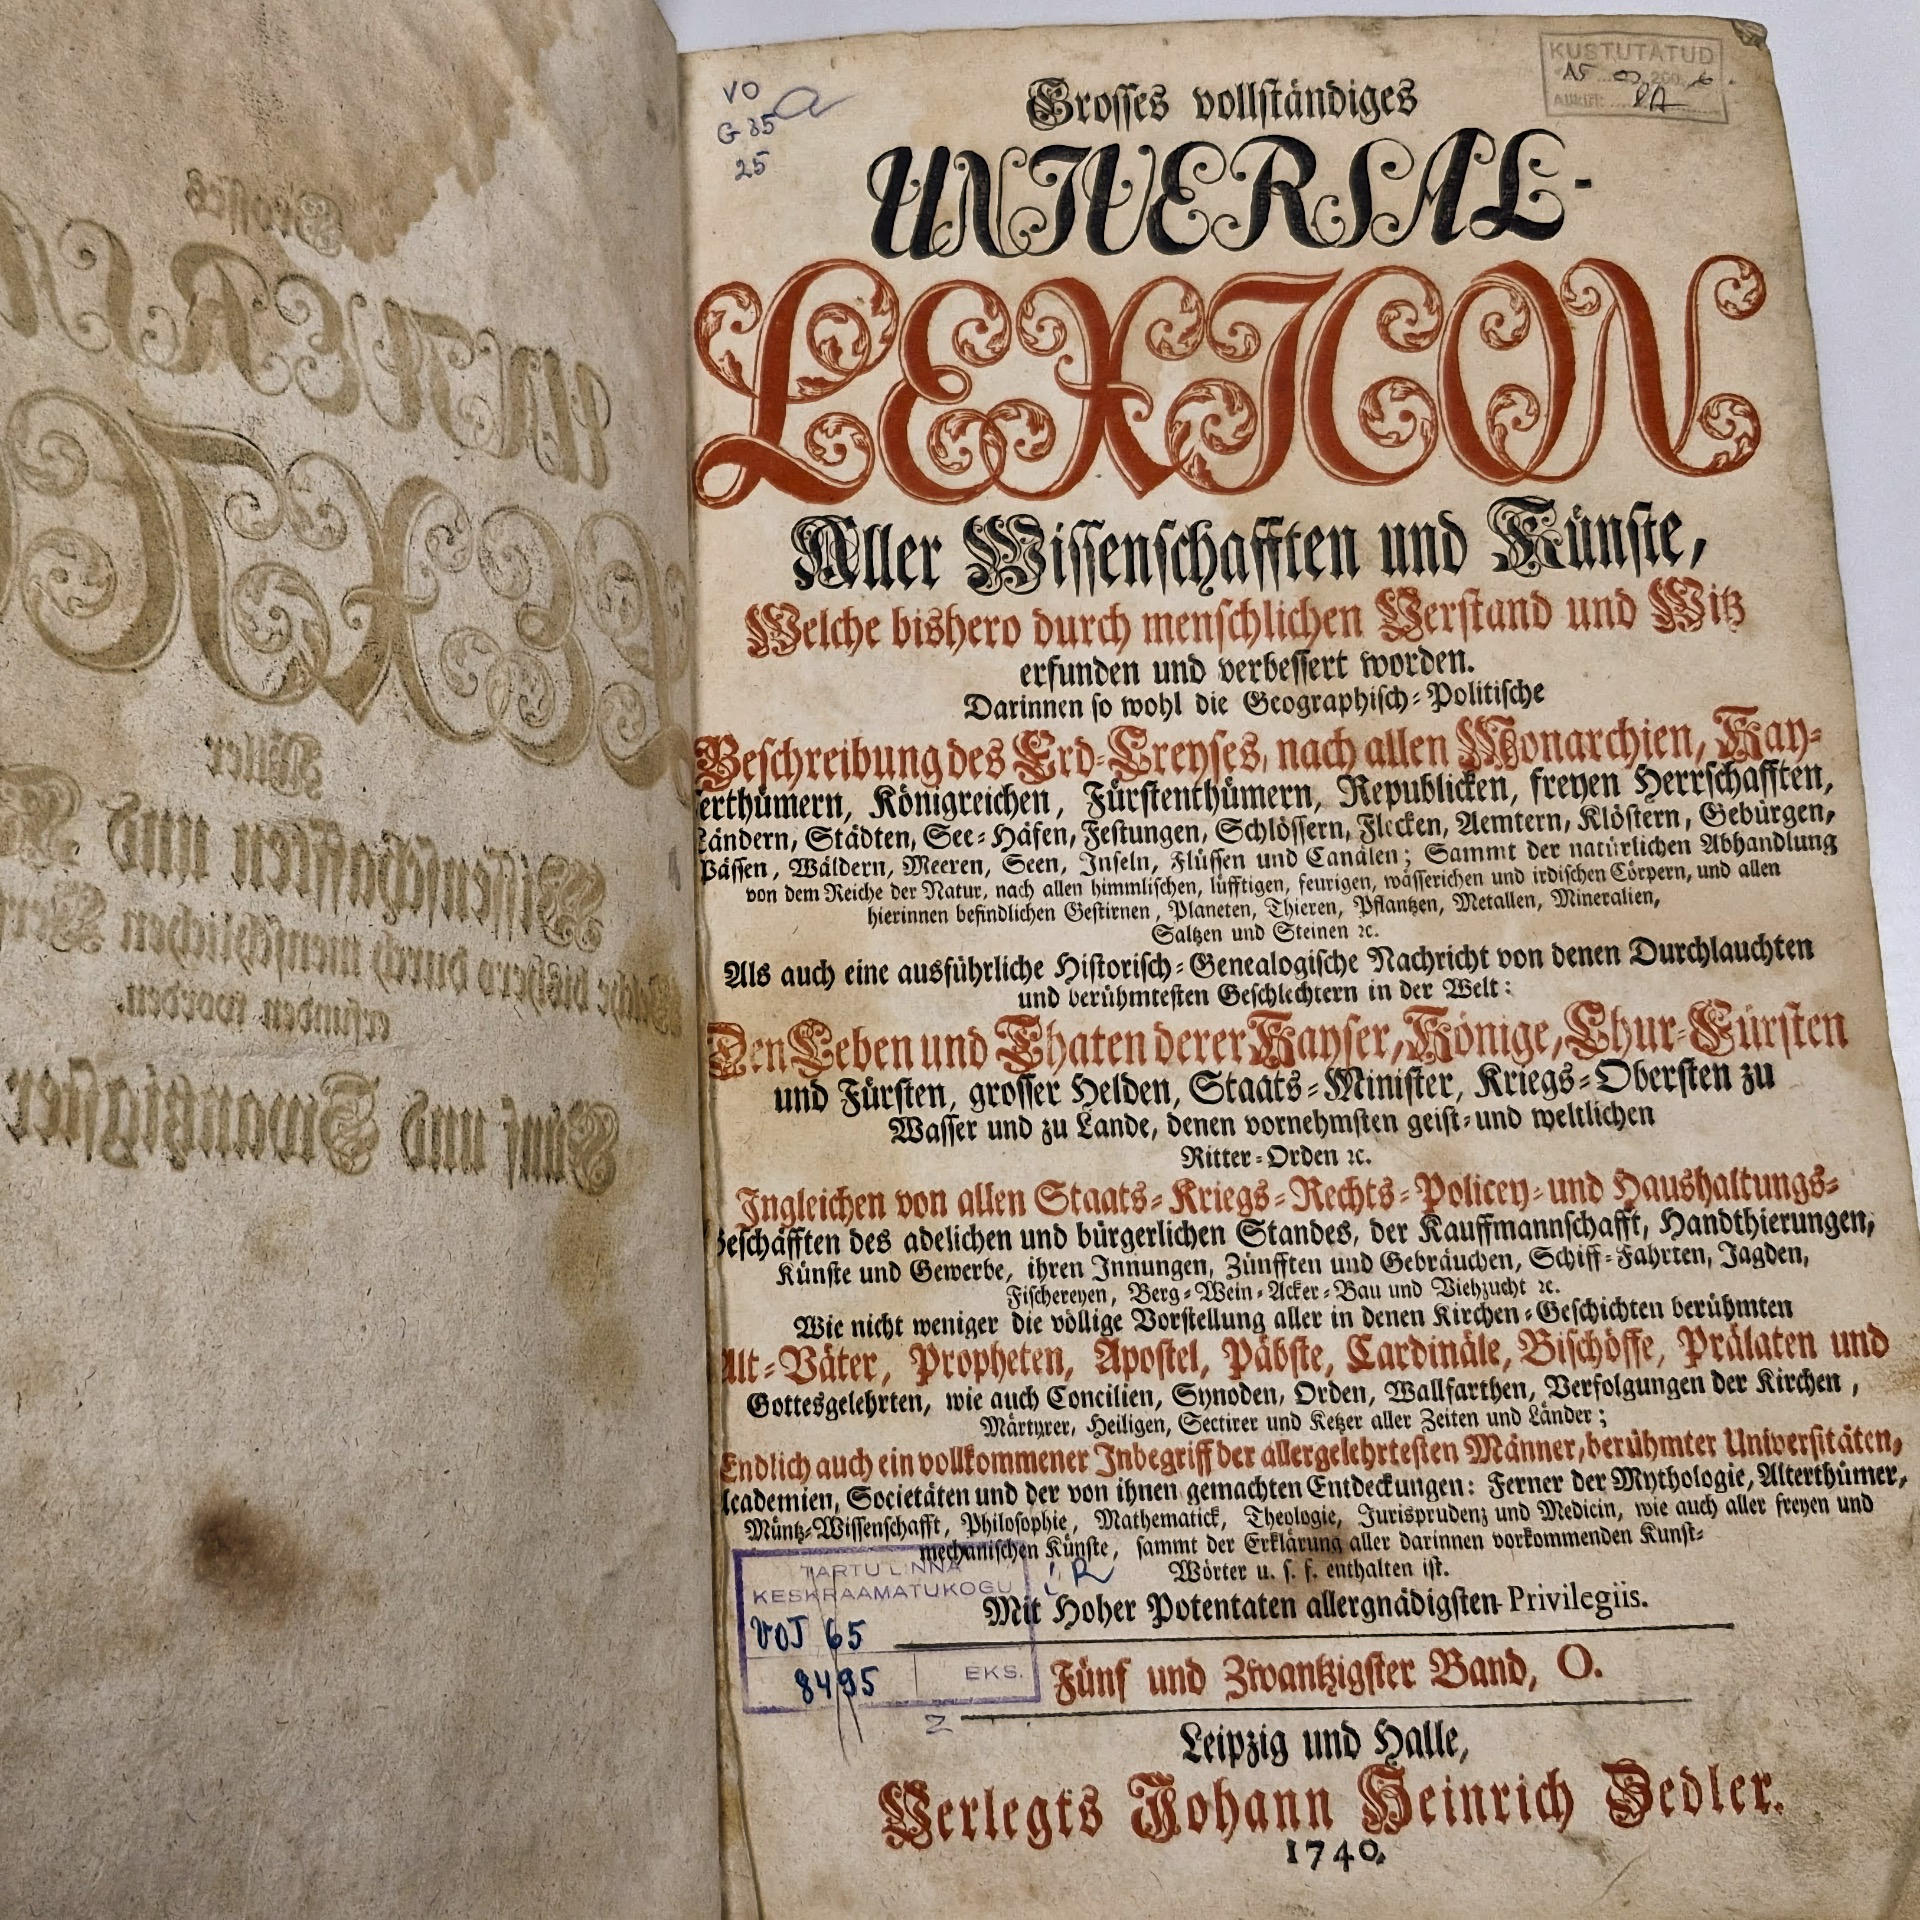 VO
G 35 a
25
KUSTUTATUD
Grosses vollständiges
UNIVERSAL-
LEXICON
Aller Wissenschafften und Künste,
Welche bishero durch menschlichen Verstand und Witz
erfunden und verbessert worden.
Darinnen so wohl die Geographisch-Politische
Beschreibung des Erd-Creyses, nach allen Monarchien, Kay-
serthümern, Königreichen, Fürstenthümern, Republicken, freyen Herrschafften,
Ländern, Städten, See-Häfen, Festungen, Schlössern, Flecken, Aemtern, Klöstern, Gebürgen,
Pässen, Wäldern, Meeren, Seen, Inseln, Flüssen und Canälen; Sammt der natürlichen Abhandlung
von dem Reiche der Natur, nach allen himmlischen, lufftigen, feurigen, wässerichen und irdischen Cörpern, und allen
hierinnen befindlichen Gestirnen, Planeten, Thieren, Pflantzen, Metallen, Mineralien,
Saltzen und Steinen ꝛc.
Als auch eine ausführliche Historisch-Genealogische Nachricht von denen Durchlauchten
und berühmtesten Geschlechtern in der Welt:
Den Leben und Thaten derer Kayser, Könige, Chur-Fürsten
und Fürsten, grosser Helden, Staats-Minister, Kriegs-Obersten zu
Wasser und zu Lande, denen vornehmsten geist-und weltlichen
Ritter-Orden ꝛc.
Ingleichen von allen Staats-Kriegs-Rechts-Policey-und Haushaltungs-
Geschäfften des adelichen und bürgerlichen Standes, der Kauffmannschafft, Handthierungen,
Künste und Gewerbe, ihren Innungen, Zünfften und Gebräuchen, Schiff-Fahrten, Jagden,
Fischereyen, Berg-Wein-Acker-Bau und Viehzucht ꝛc.
Wie nicht weniger die völlige Vorstellung aller in denen Kirchen-Geschichten berühmten
Alt-Väter, Propheten, Apostel, Päbste, Cardinäle, Bischöffe, Prälaten und
Gottesgelehrten, wie auch Concilien, Synoden, Orden, Wallfarthen, Verfolgungen der Kirchen,
Märtyrer, Heiligen, Sectirer und Ketzer aller Zeiten und Länder;
Endlich auch ein vollkommener Inbegriff der allergelehrtesten Männer, berühmter Universitäten,
Academien, Societäten und der von ihnen gemachten Entdeckungen: Ferner der Mythologie, Alterthümer,
Müntz-Wissenschafft, Philosophie, Mathematick, Theologie, Jurisprudenz und Medicin, wie auch aller freyen und
mechanischen Künste, sammt der Erklärung aller darinnen vorkommenden Kunst-
Wörter u. s. f. enthalten ist.
Mit Hoher Potentaten allergnädigsten Privilegiis.
TARTU LINNA
KESKRAAMATUKOGU
VOJ 65
8495
EKS.
Fünf und Zwantzigster Band, O.
Leipzig und Halle,
Verlegts Johann Heinrich Zedler.
1740.